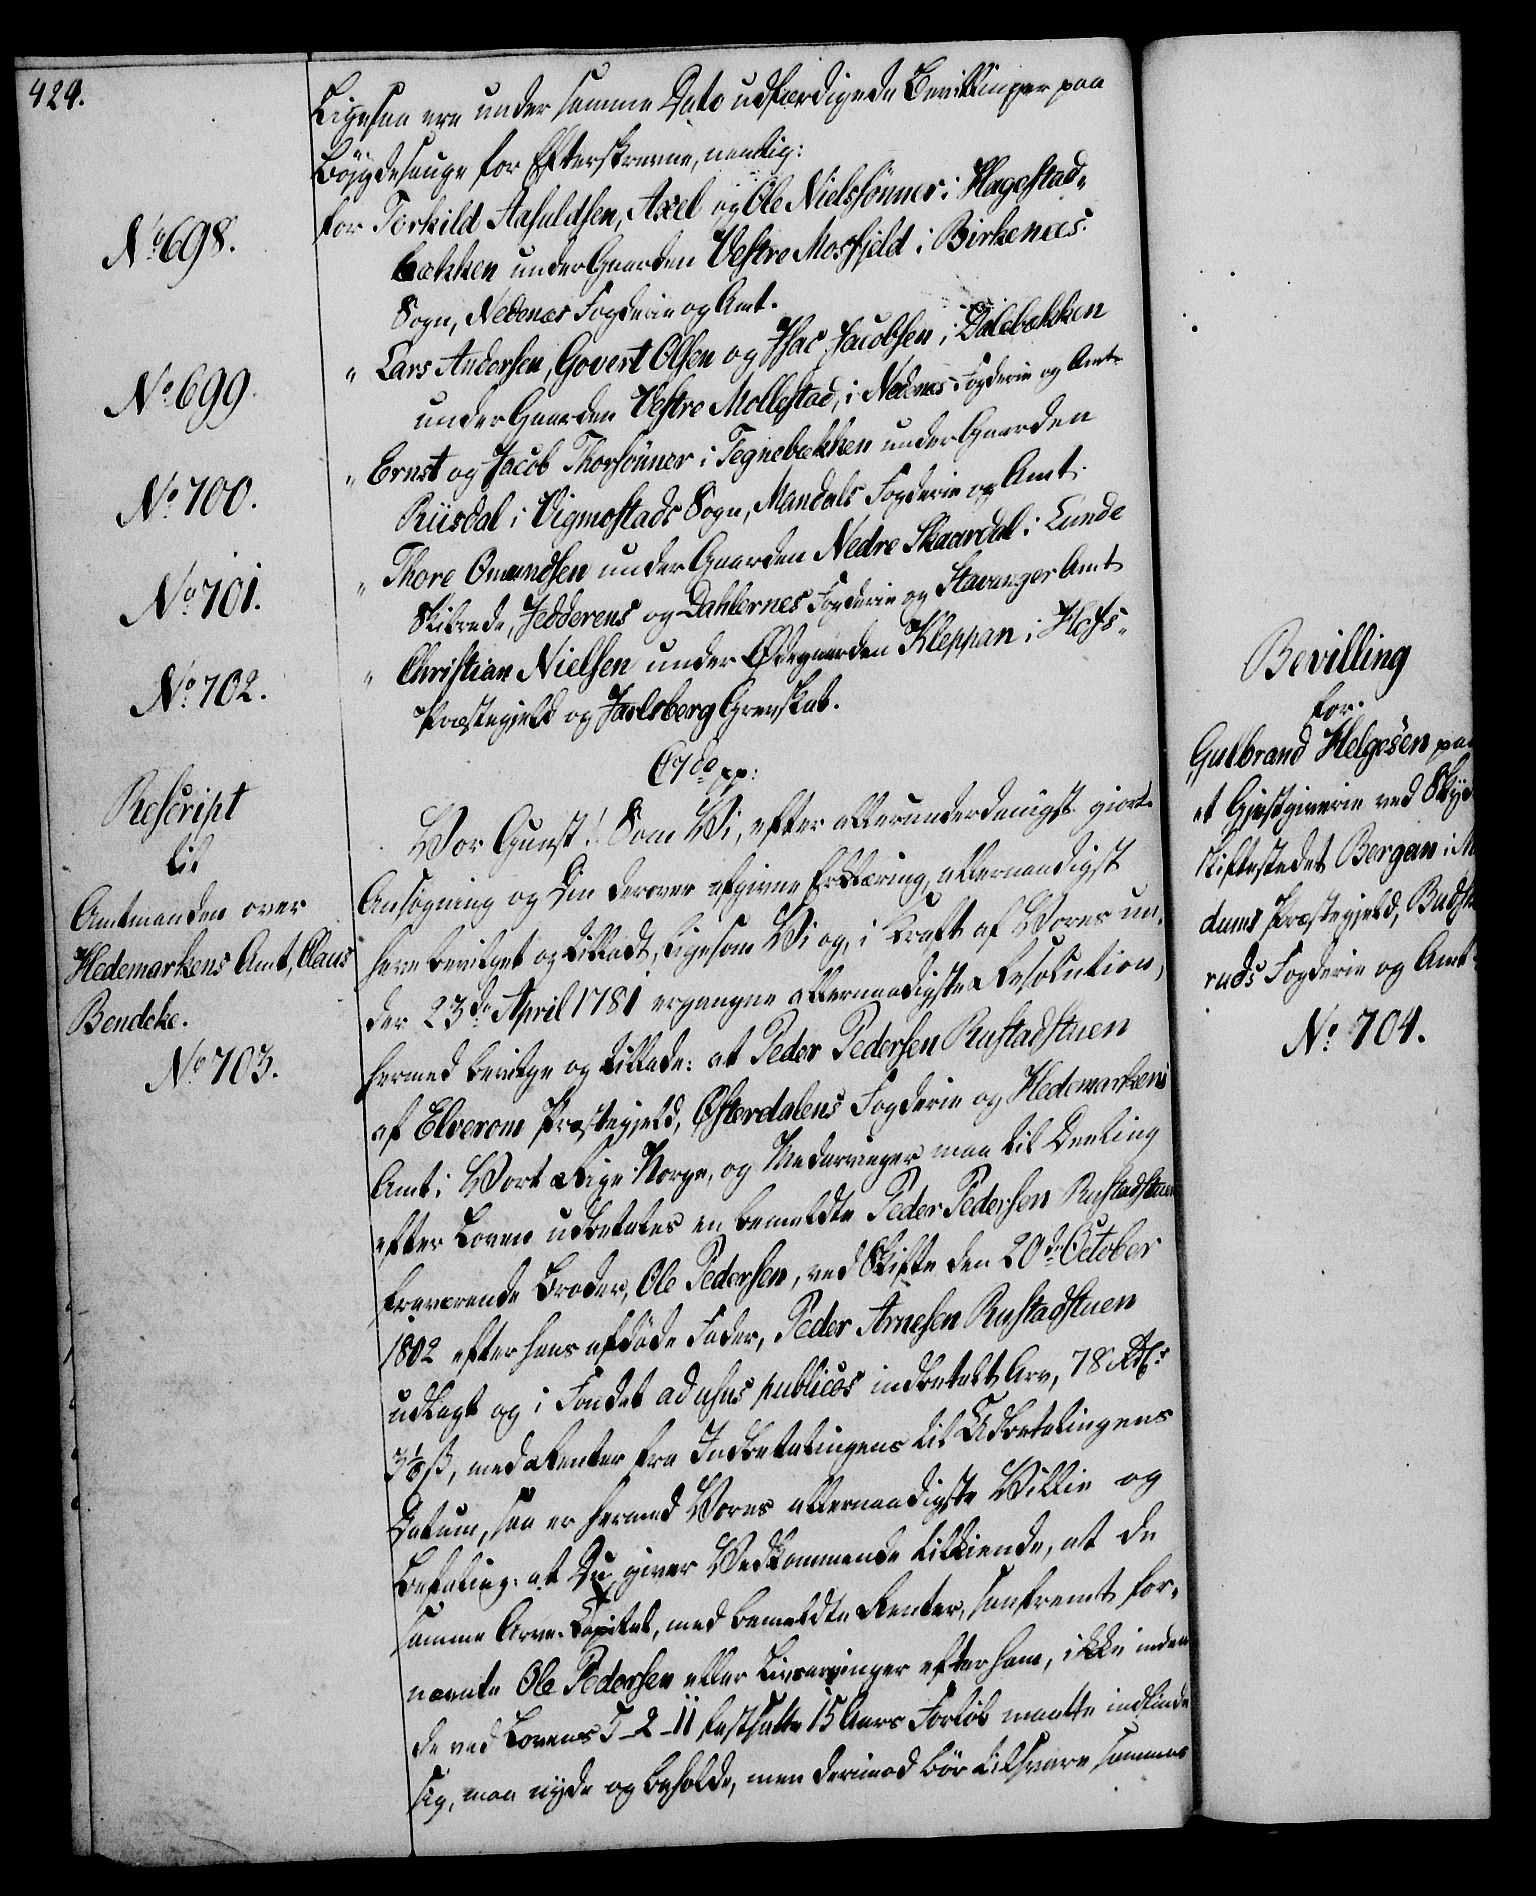 424.
Ligesaa ere under samme Dato udfærdigede Bevillinger paa
Böÿgdesauge for Efterskrevne, nemlig:
No 698.
for Torkild Aasuldsen, Axel og Ole Nielssönner i Hagestad-
bækken under Gaarden Vestre Mosfjeld i Birkenæs
Sogn, Nedenæs Fogderie og Amt.
No 699.
" Lars Andersen, Govert Olsen og Isac Jacobsen i Dalebækken
under Gaarden Vestre Mollestad, i Nedenæs Fogderie og Amt
No 700.
" Ernst og Jacob Thorsönner i Tegnebækken under Gaarden
Riisdal i Vigmostads Sogn, Mandals Fogderie og Amt.
No 701.
" Thore Omundsen under Gaarden Nedre Skaardal i Lunde
Skibrede, Jedderens og Dahlernes Fogderie og Stavanger Amt
No 702.
" Christian Nielsen under Ødegaarden Kleppan i Hofs-
Præstegjeld og Jarlsberg Grevskab.
C7de pp:
Rescript
til
Amtmanden over
Hedemarkens Amt, Claus
Bendeke.
No 703.
Vor Gunst! Som Vi, efter allerunderdanigst giort
Ansögning og Din derover afgivne Erklæring, allernaadigst
have bevilget og tilladt, ligesom Vi og, i Kraft af Vores un-
der 23de April 1781 ergangne allernaadigste Resolution,
hermed bevilge og tillade: at Peder Pedersen Rustadstuen
af Elverom Præstegjeld, Østerdalens Fogderie og Hedemarkens
Amt i Vort Rige Norge, og Medarvinger maa til Deeling
efter Loven udbetales en bemeldte Peder Pedersen Rustadstuen
fraværende Broder, Ole Pedersen, ved Skifte den 20de October
1802 efter hans afdöde Fader, Peder Arnesen Rustadstuen
udlagt og i Fondet ad usus publicos indbetalt Arv, 78 Rdlr
3½ ß, med Renter fra Indbetalingens til Udbetalingens
Datum, saa er hermed Vores allernaadigste Villie og
Befaling: at Du giver Vedkommende tilkiende, at de
samme Arve-Capital, med bemeldte Renter, saafremt for-
nævnte Ole Pedersen eller Livsarvinger efter ham, ikke inden
de ved Lovens 5-2-11 fastsatte 15 Aars Forlöb maatte indfinde
sig, maa nyde og beholde, men derimod bör tilsvare sammes
Bevilling
for
Gulbrand Helgesen paa
et Gjestgiverie ved Skyds
skiftestedet Bergan i Mo
dums Præstegjeld, Budske
ruds Fogderie og Amt.
No 704.